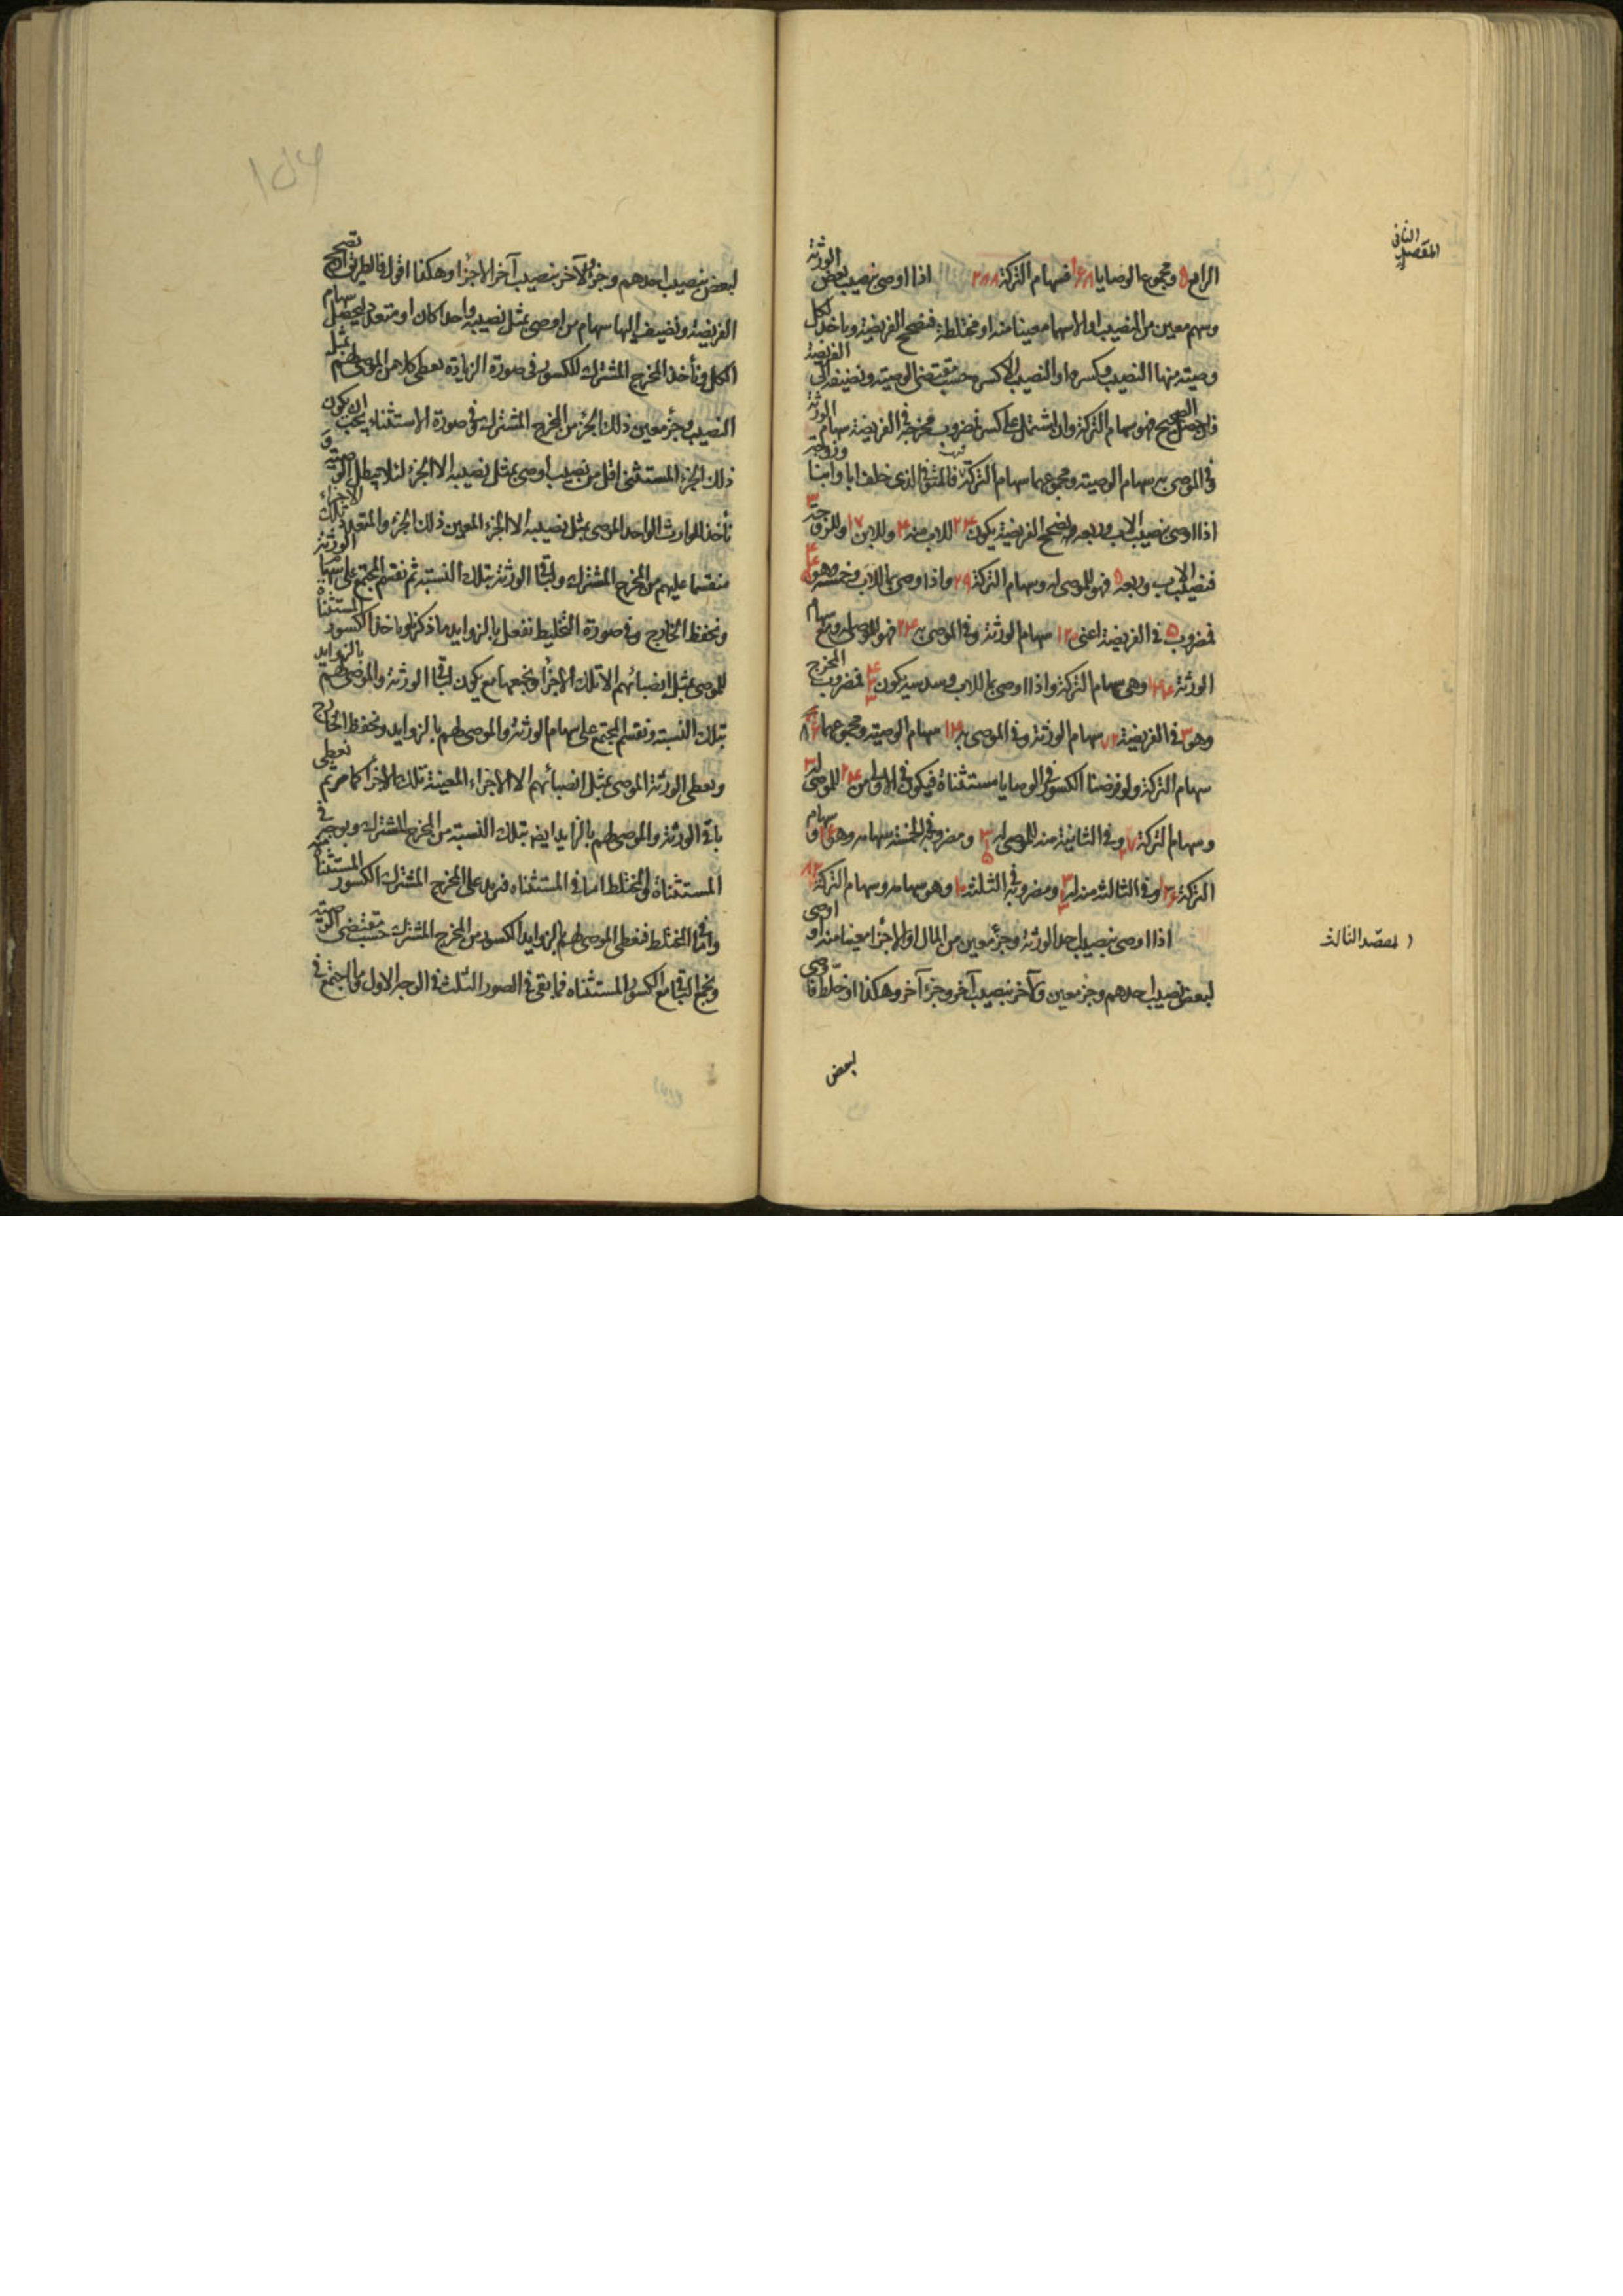 المقصد الثانى
الرابع ٥ ومجموع الوصايا ١٦٨ فسهام التركة ٢٨٨ اذا اوصى بنصيب بعض الورثة
وسهم معين من النصيب او الا سهما معينا منه او مختلطة فنصحح الفريضة وياخذ لكل
وصيته منها النصيب وكسره او النصيب الا كسره حسب مقتضى الوصية ونضيفه الى الفريضة
فان حصل الصحيح فهو سهام التركة وان اشتمل على كسر فمضروب مخرجه فى الفريضة سهام الورثة
وفى الموصى به سهام الوصية ومجموعهما سهام التركة فالمتوفى الذى خلف ابا وابنا وزوجة
اذا اوصى بنصيب الاب وربعه ونصحح الفريضة يكون ٢٤ للاب منه ٤ وللابن ١٧ وللزوجة ٣
فنصيب الاب وربعه ٥ فهو للموصى له وسهام التركة ٢٩ واذا اوصى بما للاب وخمسه وهو
فمضروب ٥ فى الفريضة اعنى ١٢٠ سهام الورثة وفى الموصى به ٢٤ فهو للموصى له ومع سهام
الورثة ١٤٤ وهى سهام التركة واذا اوصى بما للاب وسدسه يكون فمضروب المخرج
وهو ٣ فى الفريضة ٧٢ سهام الورثة وفى الموصى به ١٤ سهام الوصية ومجموعهما ٨٦
سهام التركة ولو فرضنا الكسور فى الوصايا مستثناة فيكون فى الاولى من ٢٤ للموصى له ٣
وسهام التركة ٢٧ وفى الثانية منه للموصى له ومضروبه فى الخمسة سهامه وهو ١٦ وسهام
التركة ١٣٦ وفى الثالثة منه له ومضروبه فى الثلثة ١٠ وهو سهامه وسهام التركة ٨٢
المقصد الثالث
اذا اوصى بنصيب احد الورثة وجزء معين من المال او الا جزءا معينا منه او اوصى
لبعض بنصيب احدهم وجزء معين ولآخر بنصيب آخر وجزء آخر وهكذا او خلط فاوصى
لبعض
لبعض بنصيب احدهم وجزء ولآخر بنصيب آخر الا جزءا وهكذا اقول فالطريق ان تصحح
الفريضة ونضيف اليها سهام من اوصى بمثل نصيبه واحدا كان او متعددا ليحصل سهام
الكل وناخذ المخرج المشترك للكسور فى صورة الزيادة يعطى كلا من الموصى لهم بمثل
النصيب وجزء معين ذلك الجزء من المخرج المشترك وفى صورة الاستثناء يجب ان يكون
ذلك الجزء المستثنى اقل من نصيب اوصى بمثل نصيبه الا الجزء لئلا يبطل الوصية و
نأخذ للوارث الواحد الموصى بمثل نصيبه الا الجزء المعين ذلك الجزء وللمتعدد تلك الاجزاء
منقسما عليهم من المخرج المشترك ولباقى الورثة بتلك النسبة ثم نقسم المجتمع على سهام الورثة
ونحفظ الخارج وفى صورة التخليط نفعل بالزوايد ما ذكر وناخذ الكسور المستثناة
للموصى بمثل انصبائهم الا تلك الاجزاء ونجمعها مع يكون لباقى الورثة والموصى لهم بالزوايد
بتلك النسبة ونقسم المجتمع على سهام الورثة والموصى لهم بالزوايد ونحفظ الخارج
ونعطى الورثة الموصى بمثل انصبائهم الا الاجزاء المعينة تلك الاجزاء كما مر ثم نعطى
باقى الورثة والموصى لهم بالزايد ايضا بتلك النسبة من المخرج المشترك وبوجه فى
المستثناة والمختلط اما فى المستثناه فنزيد على المخرج المشترك الكسور المستثناة
واما فى المختلط فنعطى الموصى لهم بالزوايد الكسور من المخرج المشترك حسب مقتضى الوصية
ونجمع الباقى مع الكسور المستثناه فما بقى فى الصور الثلث فى الوجه الاول وما اجتمع فى